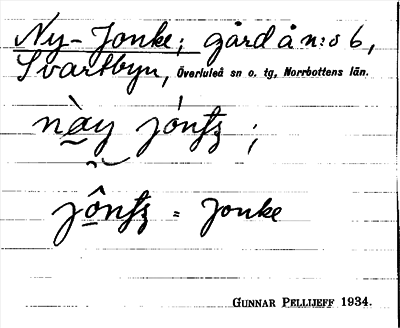 Ny-Jonke; gård å n:o 6,
Svartbyn, Överluleå sn o. tg, Norrbottens län.
này jónʃʒ ;
jônʃʒ = Jonke
GUNNAR PELLIJEFF 1934.